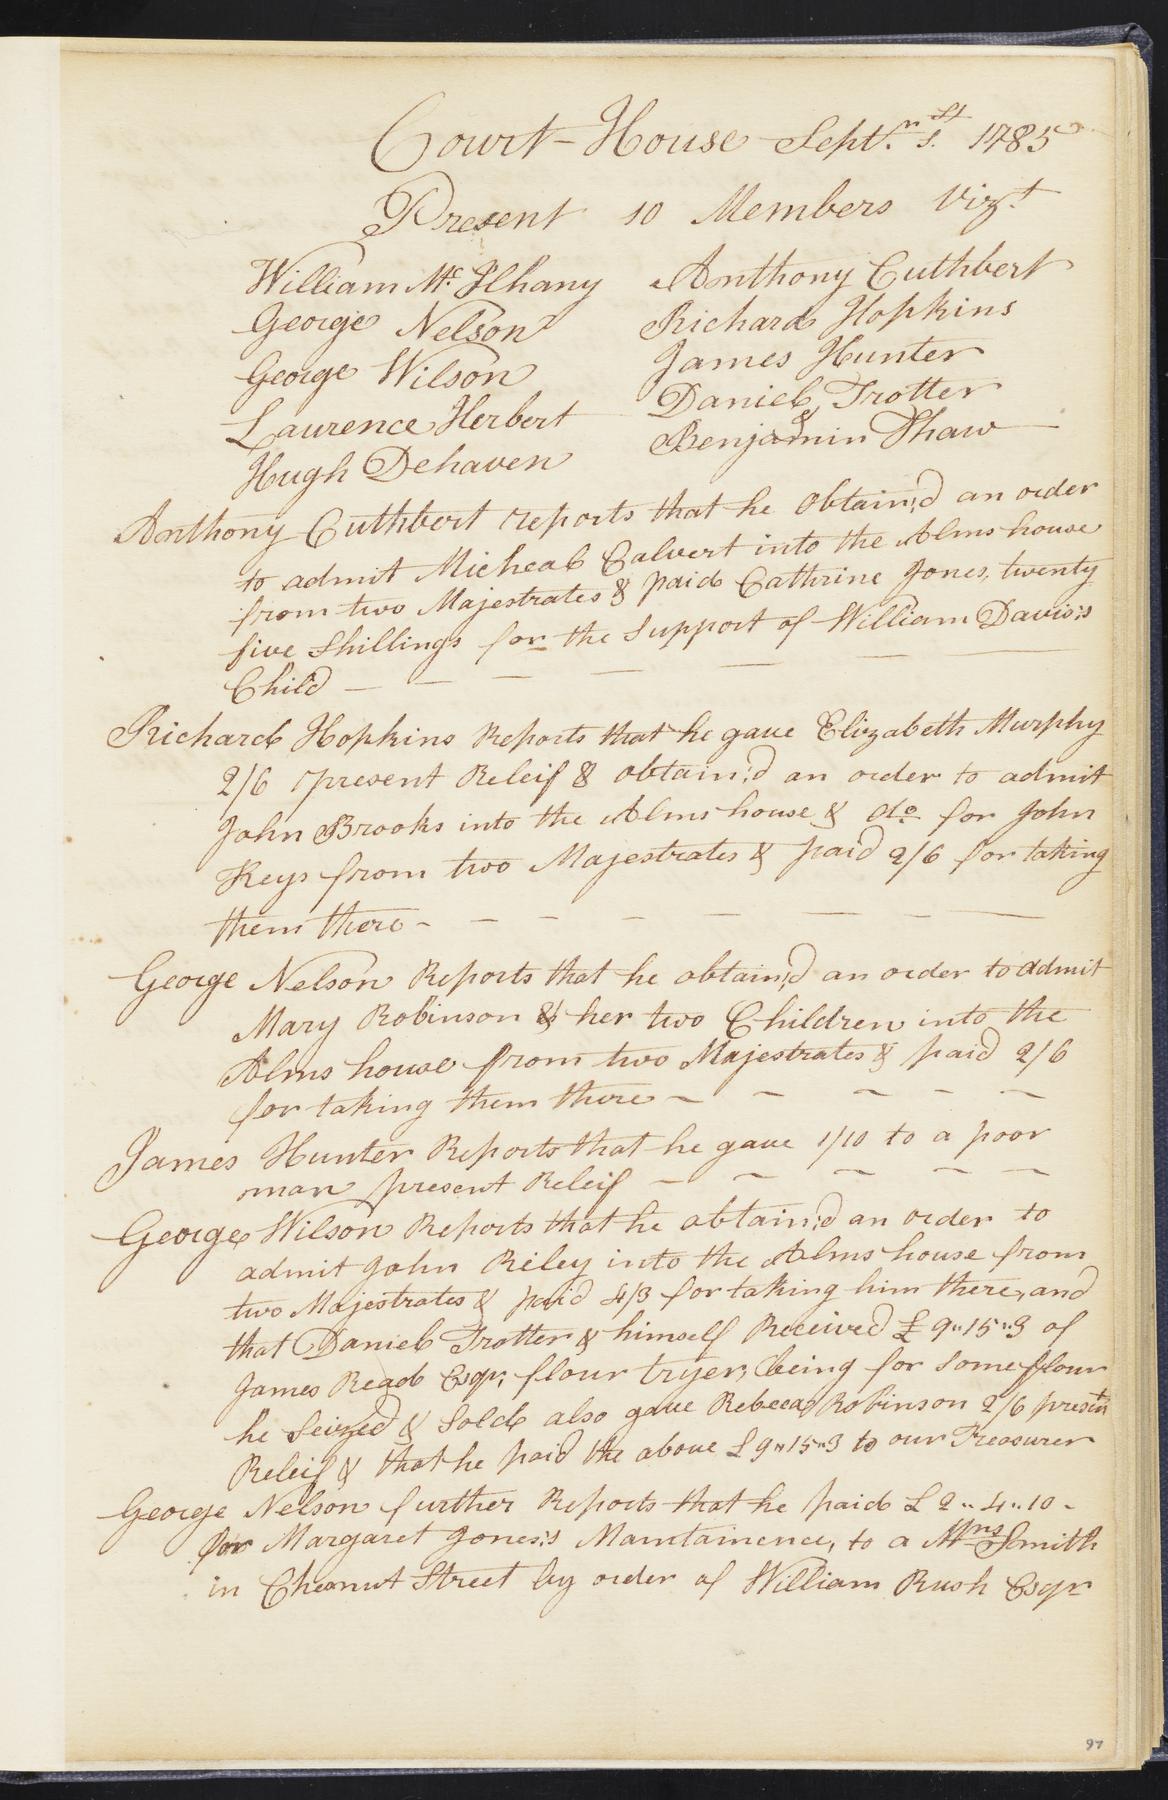 Court-House Sept.m 1.st 1785
Present 10 Members Vizt
William Mc Ilhany
George Nelson
George Wilson
Laurence Herbert
Hugh Dehaven
Anthony Cuthbert
Richard Hopkins
James Hunter
Daniel Trotter
&
Benjamin Shaw
Anthony Cuthbert reports that he obtain;d an order
to admit Micheal Calvert into the Alms house
from two Majestrates & paid Cathrine Jones, twenty
five Shillings for the Support of William Davis;s
Child
Richard Hopkins Reports that he gave Elizabeth Murphy
2/6 present Releif & obtain;d an order to admit
John Brooks into the Alms house & do for John
Keys from two Majestrates & paid 2/6 for taking
them there
George Nelson Reports that he obtain;d an order to admit
Mary Robinson & her two Children into the
Alms house from two Majestrates & paid 2/6
for taking them there
James Hunter Reports that he gave 1/10 to a poor
man present Releif
George Wilson Reports that he obtain;d an order to
admit John Riley into the Alms house from
two Majestrates & paid 4/3 for taking him there, and
that Daniel Trotter & himself Received £ 9"15"3 of
James Read Esqr, flour tryer, being for some flour
he Seized & Sold also gave Rebecca Robinson 2/6 presnt
Releif & that he paid the above £ 9"15"3 to our Treasurer
George Nelson further Reports that he paid £ 2"4"10
for Margaret Jones;s Maintainence, to a Mrs Smith
in Chesnut Street by order of William Rush Esqr
97